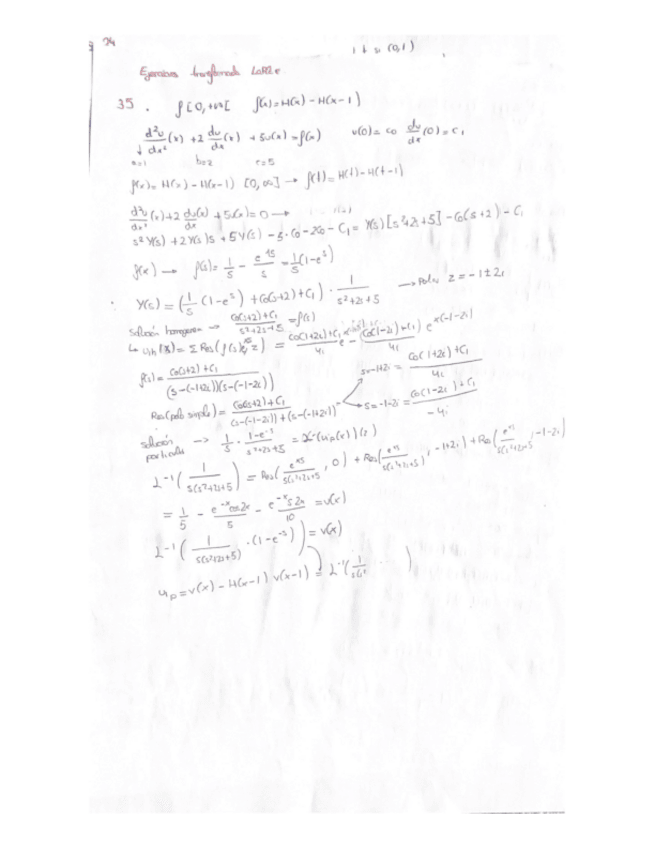 24
1 ↓ si (0,1)
Ejercicios transformada Laplace
35. f [0,+∞[ f(x)=H(x)-H(x-1)
d²u/dx² (x) + 2 du/dx (x) + 5u(x) = f(x) u(0)=c0 du/dx (0)=c1
a=1 b=2 c=5
f(x)=H(x)-H(x-1) [0,∞] → f(t)=H(t)-H(t-1)
d²u/dx² (x)+2 du(x)/dx + 5u(x)=0 →
s² Y(s) + 2Y(s)s + 5Y(s) - s·c0 - 2c0 - c1 = Y(s)[s²+2s+5] - c0(s+2) - c1
f(x) → f(s)= 1/s - e^-1s/s = 1/s (1-e^s)
Y(s) = (1/s (1-e^s) + c0(s+2)+c1) · 1/(s²+2s+5) → Polos z=-1±2i
Solución homogenea → (c0(s+2)+c1)/(s²+2s+5) = f(s)
f(s)= (c0(s+2)+c1)/((s-(-1+2i))(s-(-1-2i)))
s=-1+2i = (c0(1+2i)+c1)/4i
Res(polo simple) = (c0(s+2)+c1)/((s-(-1-2i)) + (s-(-1+2i)))
s=-1-2i = (c0(1-2i)+c1)/-4i
Solución particular → 1/s · (1-e^-s)/(s²+2s+5) = L(up(x))(z)
L^-1 (1/(s(s²+2s+5))) = Res(e^xs/(s(s²+2s+5)), 0) + Res(e^xs/(s(s²+2s+5)), -1+2i) + Res(e^xs/(s(s²+2s+5)), -1-2i)
= 1/5 - e^-x cos2x/5 - e^-x s2x/10 = v(x)
L^-1 (1/(s(s²+2s+5)) · (1-e^-s)) = v(x)
up = v(x) - H(x-1) v(x-1) = L^-1(